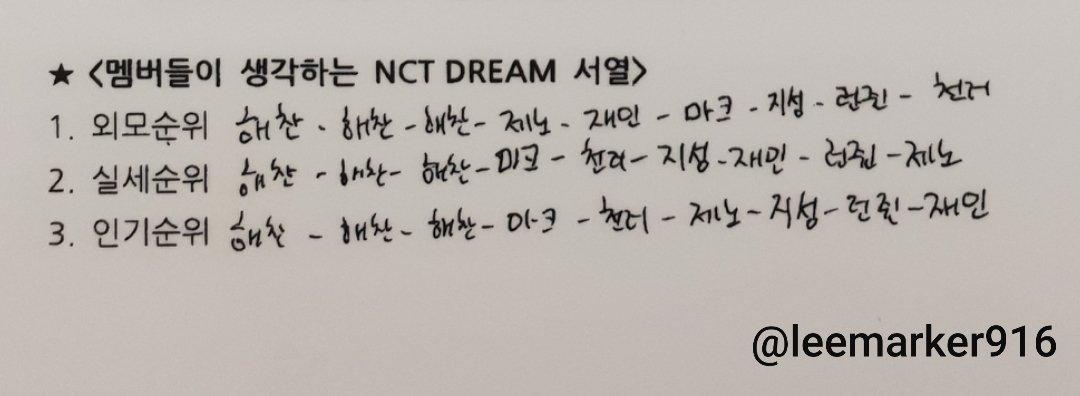 ★ <멤버들이 생각하는 NCT DREAM 서열>
1. 외모순위 해찬 - 해찬 - 해찬 - 제노 - 재민 - 마크 - 지성 - 런쥔 - 천러
2. 실세순위 해찬 - 해찬 - 해찬 - 마크 - 천러 - 지성 - 재민 - 런쥔 - 제노
3. 인기순위 해찬 - 해찬 - 해찬 - 마크 - 천러 - 제노 - 지성 - 런쥔 - 재민
@leemarker916